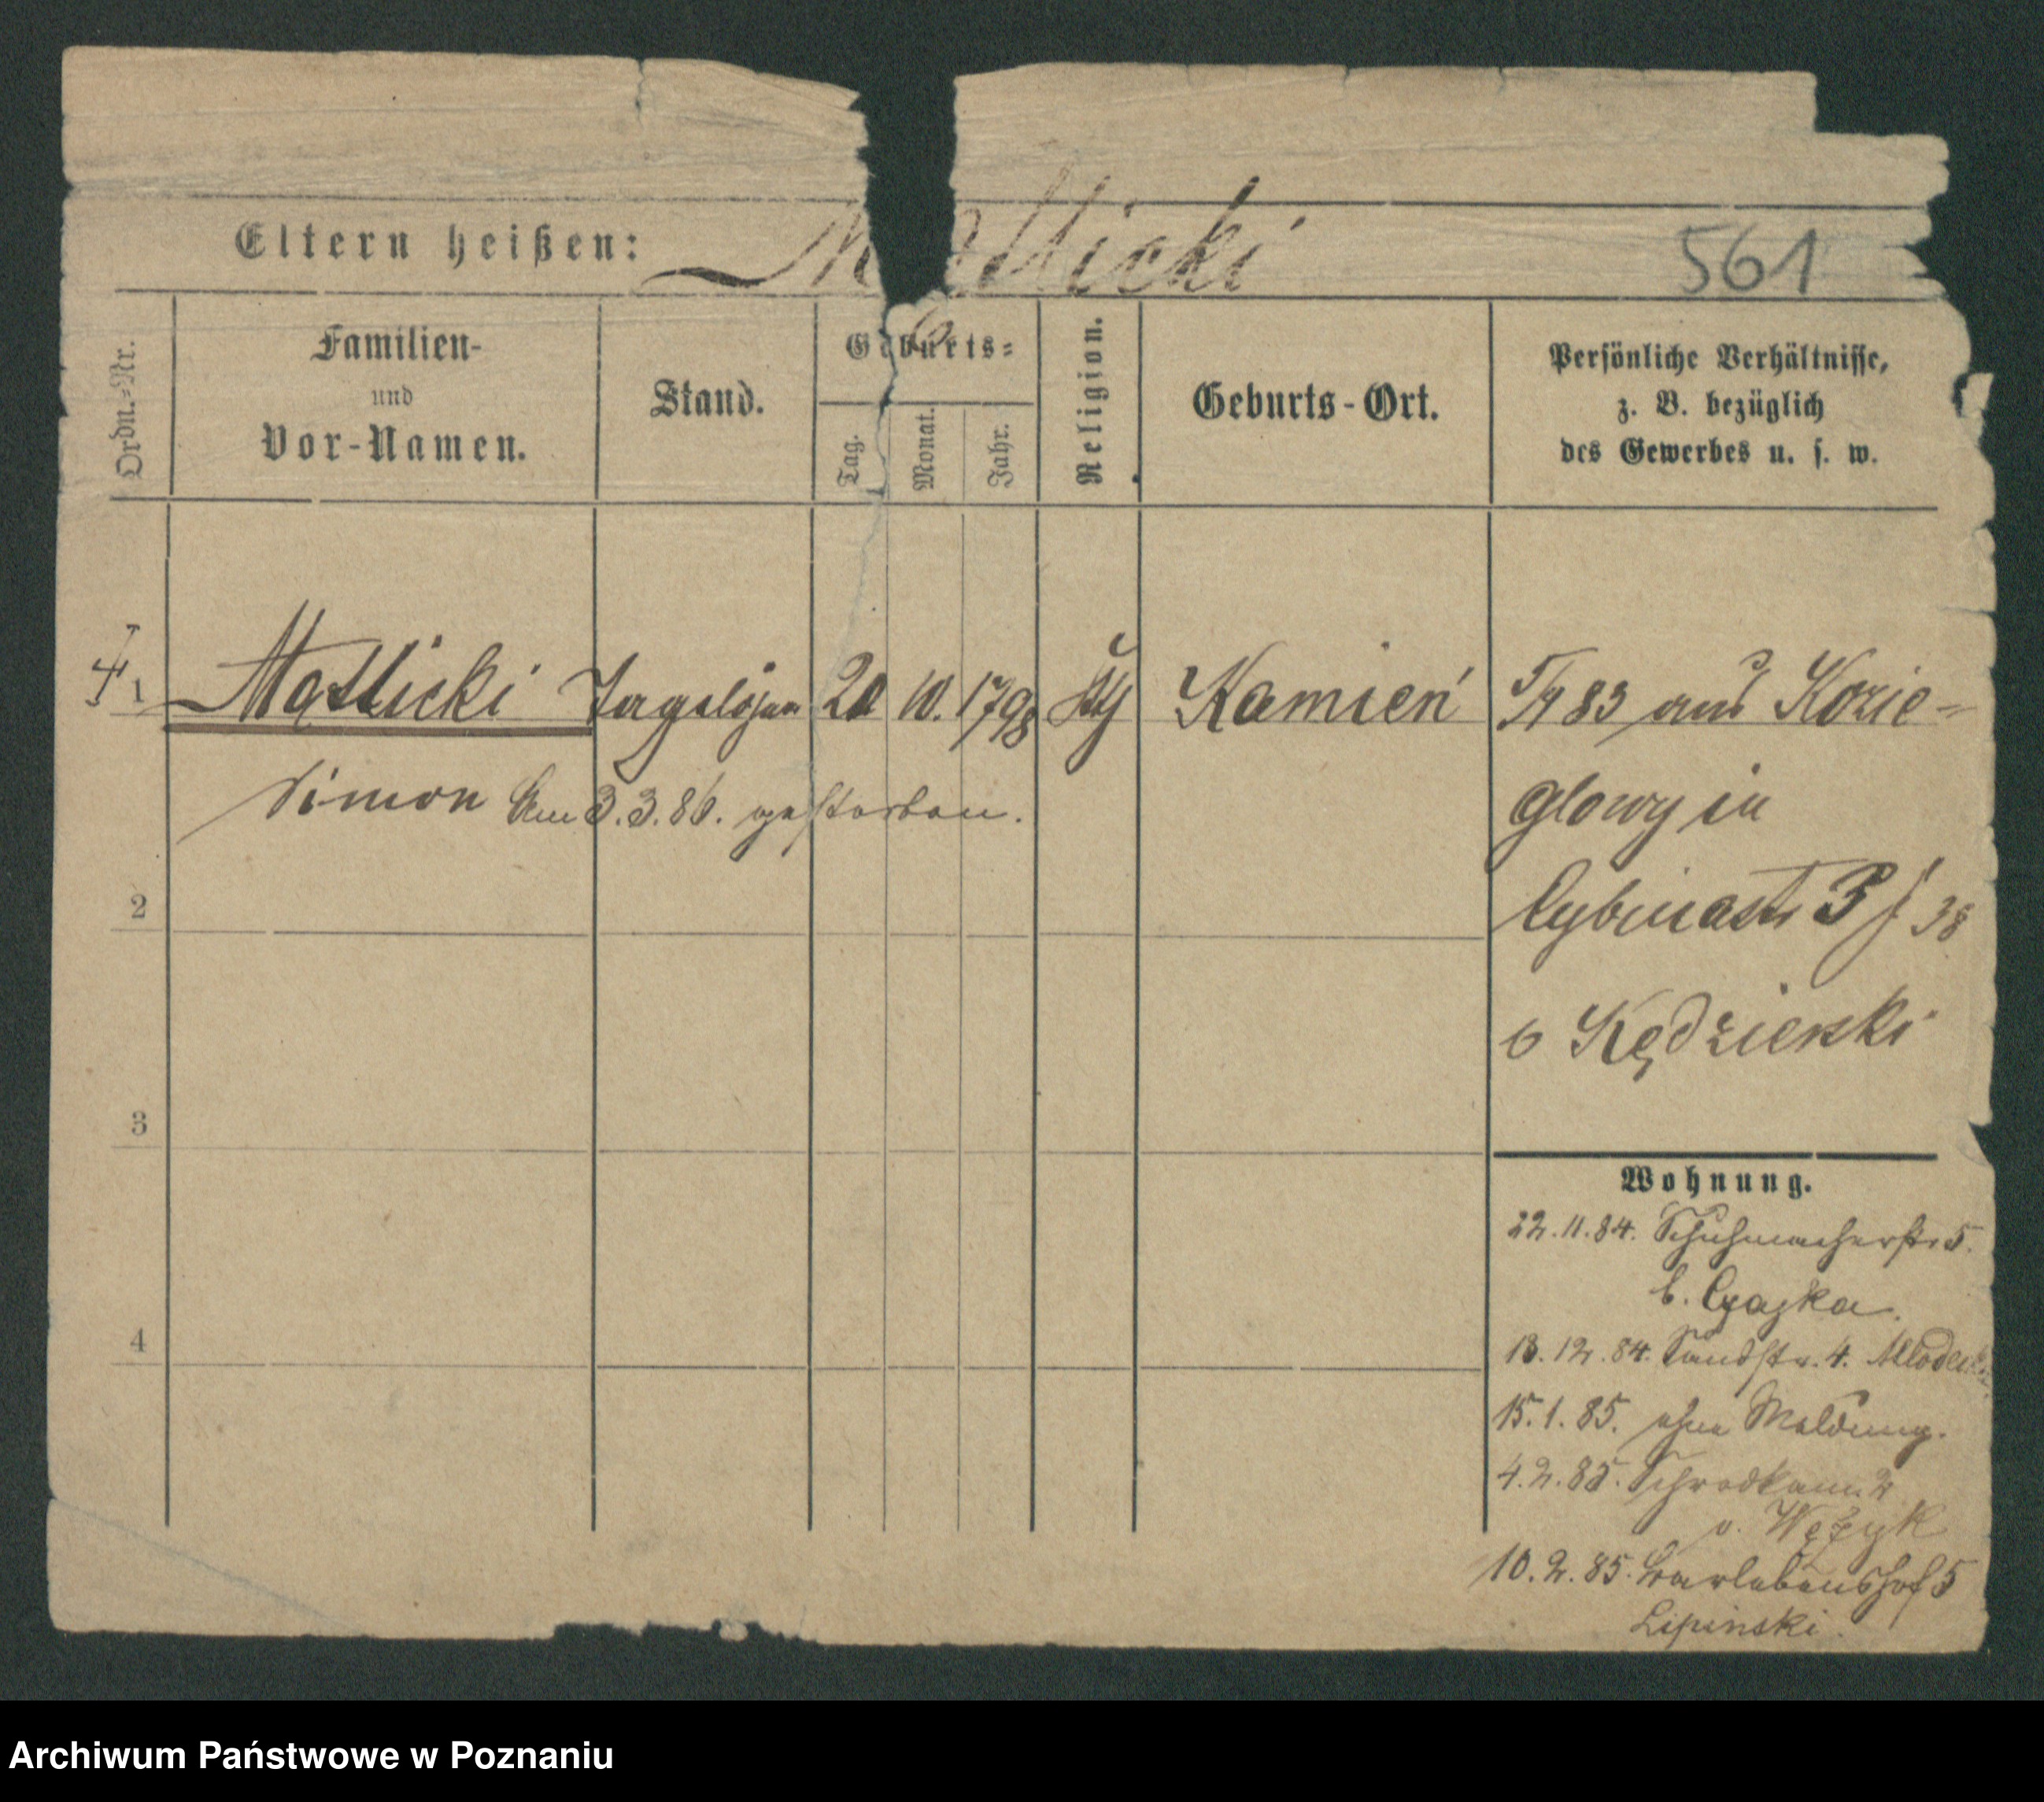 Eltern heißen: Matlicki 561
Ordn.-Nr.
Familien-
und
Vor-Namen.
Stand.
Geburts-
Tag.
Monat.
Jahr.
Religion.
Geburts-Ort.
Persönliche Verhältnisse,
z. B. bezüglich
des Gewerbes u. s. w.
1 Matlicki 20 10. 1798 Kamień 83 aus Kozie-
Simon am 3.3.86. gestorben.
glowy in
Cybinastr 3 38
2
Kędzierski
3
Wohnung.
22.11.84. Schuhmacherstr 5.
b. Czajka.
4
13.12.84. Sandstr. 4.
15.1.85. ohne Meldung.
4.2.85. Schrodkam. 2
v. Wężyk
10.2.85. Berlebenshof 5
Lipinski.
Archiwum Państwowe w Poznaniu